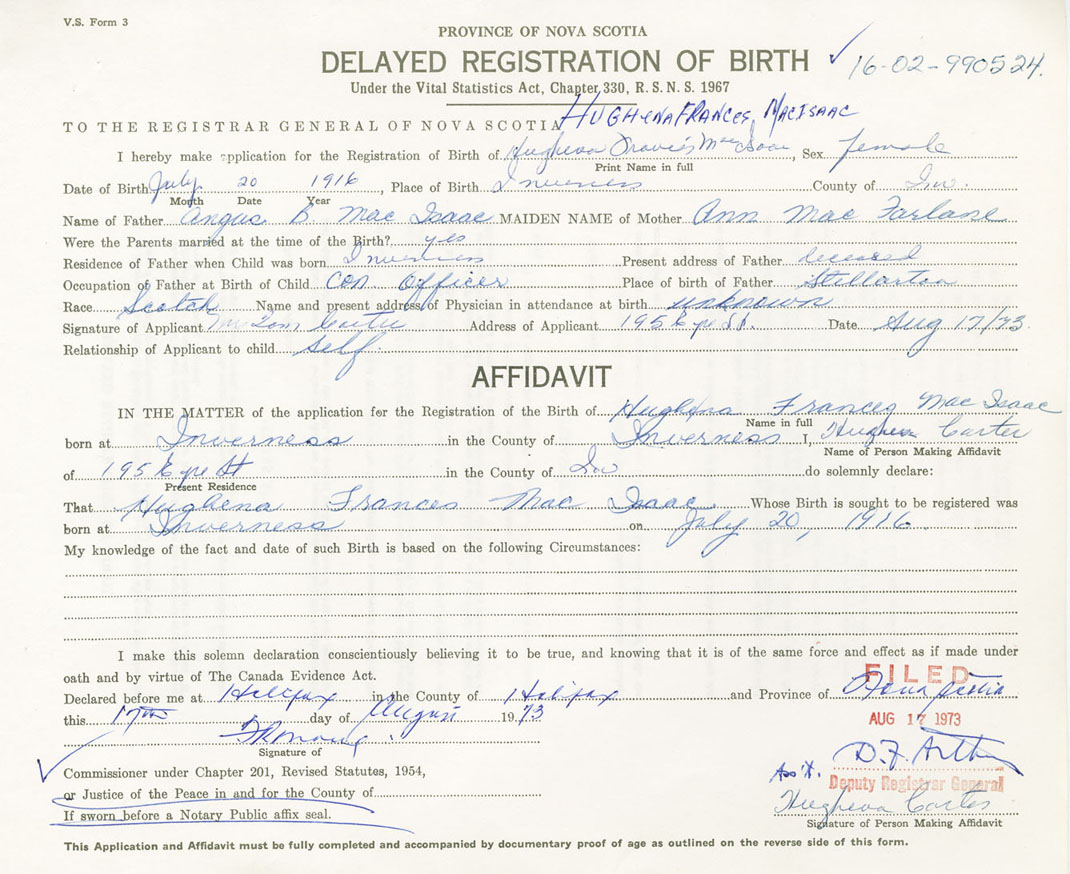 V.S. Form 3
PROVINCE OF NOVA SCOTIA
DELAYED REGISTRATION OF BIRTH
16-02-990524.
Under the Vital Statistics Act, Chapter 330, R.S.N.S. 1967
HUGHENA FRANCES, MACISAAC
TO THE REGISTRAR GENERAL OF NOVA SCOTIA
I hereby make application for the Registration of Birth of Hughena Francis MacIsaac, Sex female
Print Name in full
Date of Birth July 20 1916, Place of Birth Inverness County of Inv.
Month Date Year
Name of Father Angus D. Mac Isaac MAIDEN NAME of Mother Ann Mac Farlane
Were the Parents married at the time of the Birth? yes
Residence of Father when Child was born Inverness Present address of Father deceased
Occupation of Father at Birth of Child Con. Officer Place of birth of Father Stellarton
Race Scotch Name and present address of Physician in attendance at birth unknown
Signature of Applicant Mrs Tom Carter Address of Applicant 195 St. Date Aug 17/73.
Relationship of Applicant to child self.
AFFIDAVIT
IN THE MATTER of the application for the Registration of the Birth of Hughena Frances Mac Isaac
Name in full
born at Inverness in the County of Inverness I, Hughena Carter
Name of Person Making Affidavit
of 195 St in the County of Inv do solemnly declare:
Present Residence
That Hughena Frances Mac Isaac Whose Birth is sought to be registered was
born at Inverness on July 20, 1916
My knowledge of the fact and date of such Birth is based on the following Circumstances:
I make this solemn declaration conscientiously believing it to be true, and knowing that it is of the same force and effect as if made under
oath and by virtue of The Canada Evidence Act.
FILED
Declared before me at Halifax in the County of Halifax and Province of Nova Scotia
this 17th day of August 1973
AUG 17 1973
Signature of
Commissioner under Chapter 201, Revised Statutes, 1954,
D.F. Arthur
Ass't. Deputy Registrar General
or Justice of the Peace in and for the County of
Hughena Carter
If sworn before a Notary Public affix seal.
Signature of Person Making Affidavit
This Application and Affidavit must be fully completed and accompanied by documentary proof of age as outlined on the reverse side of this form.